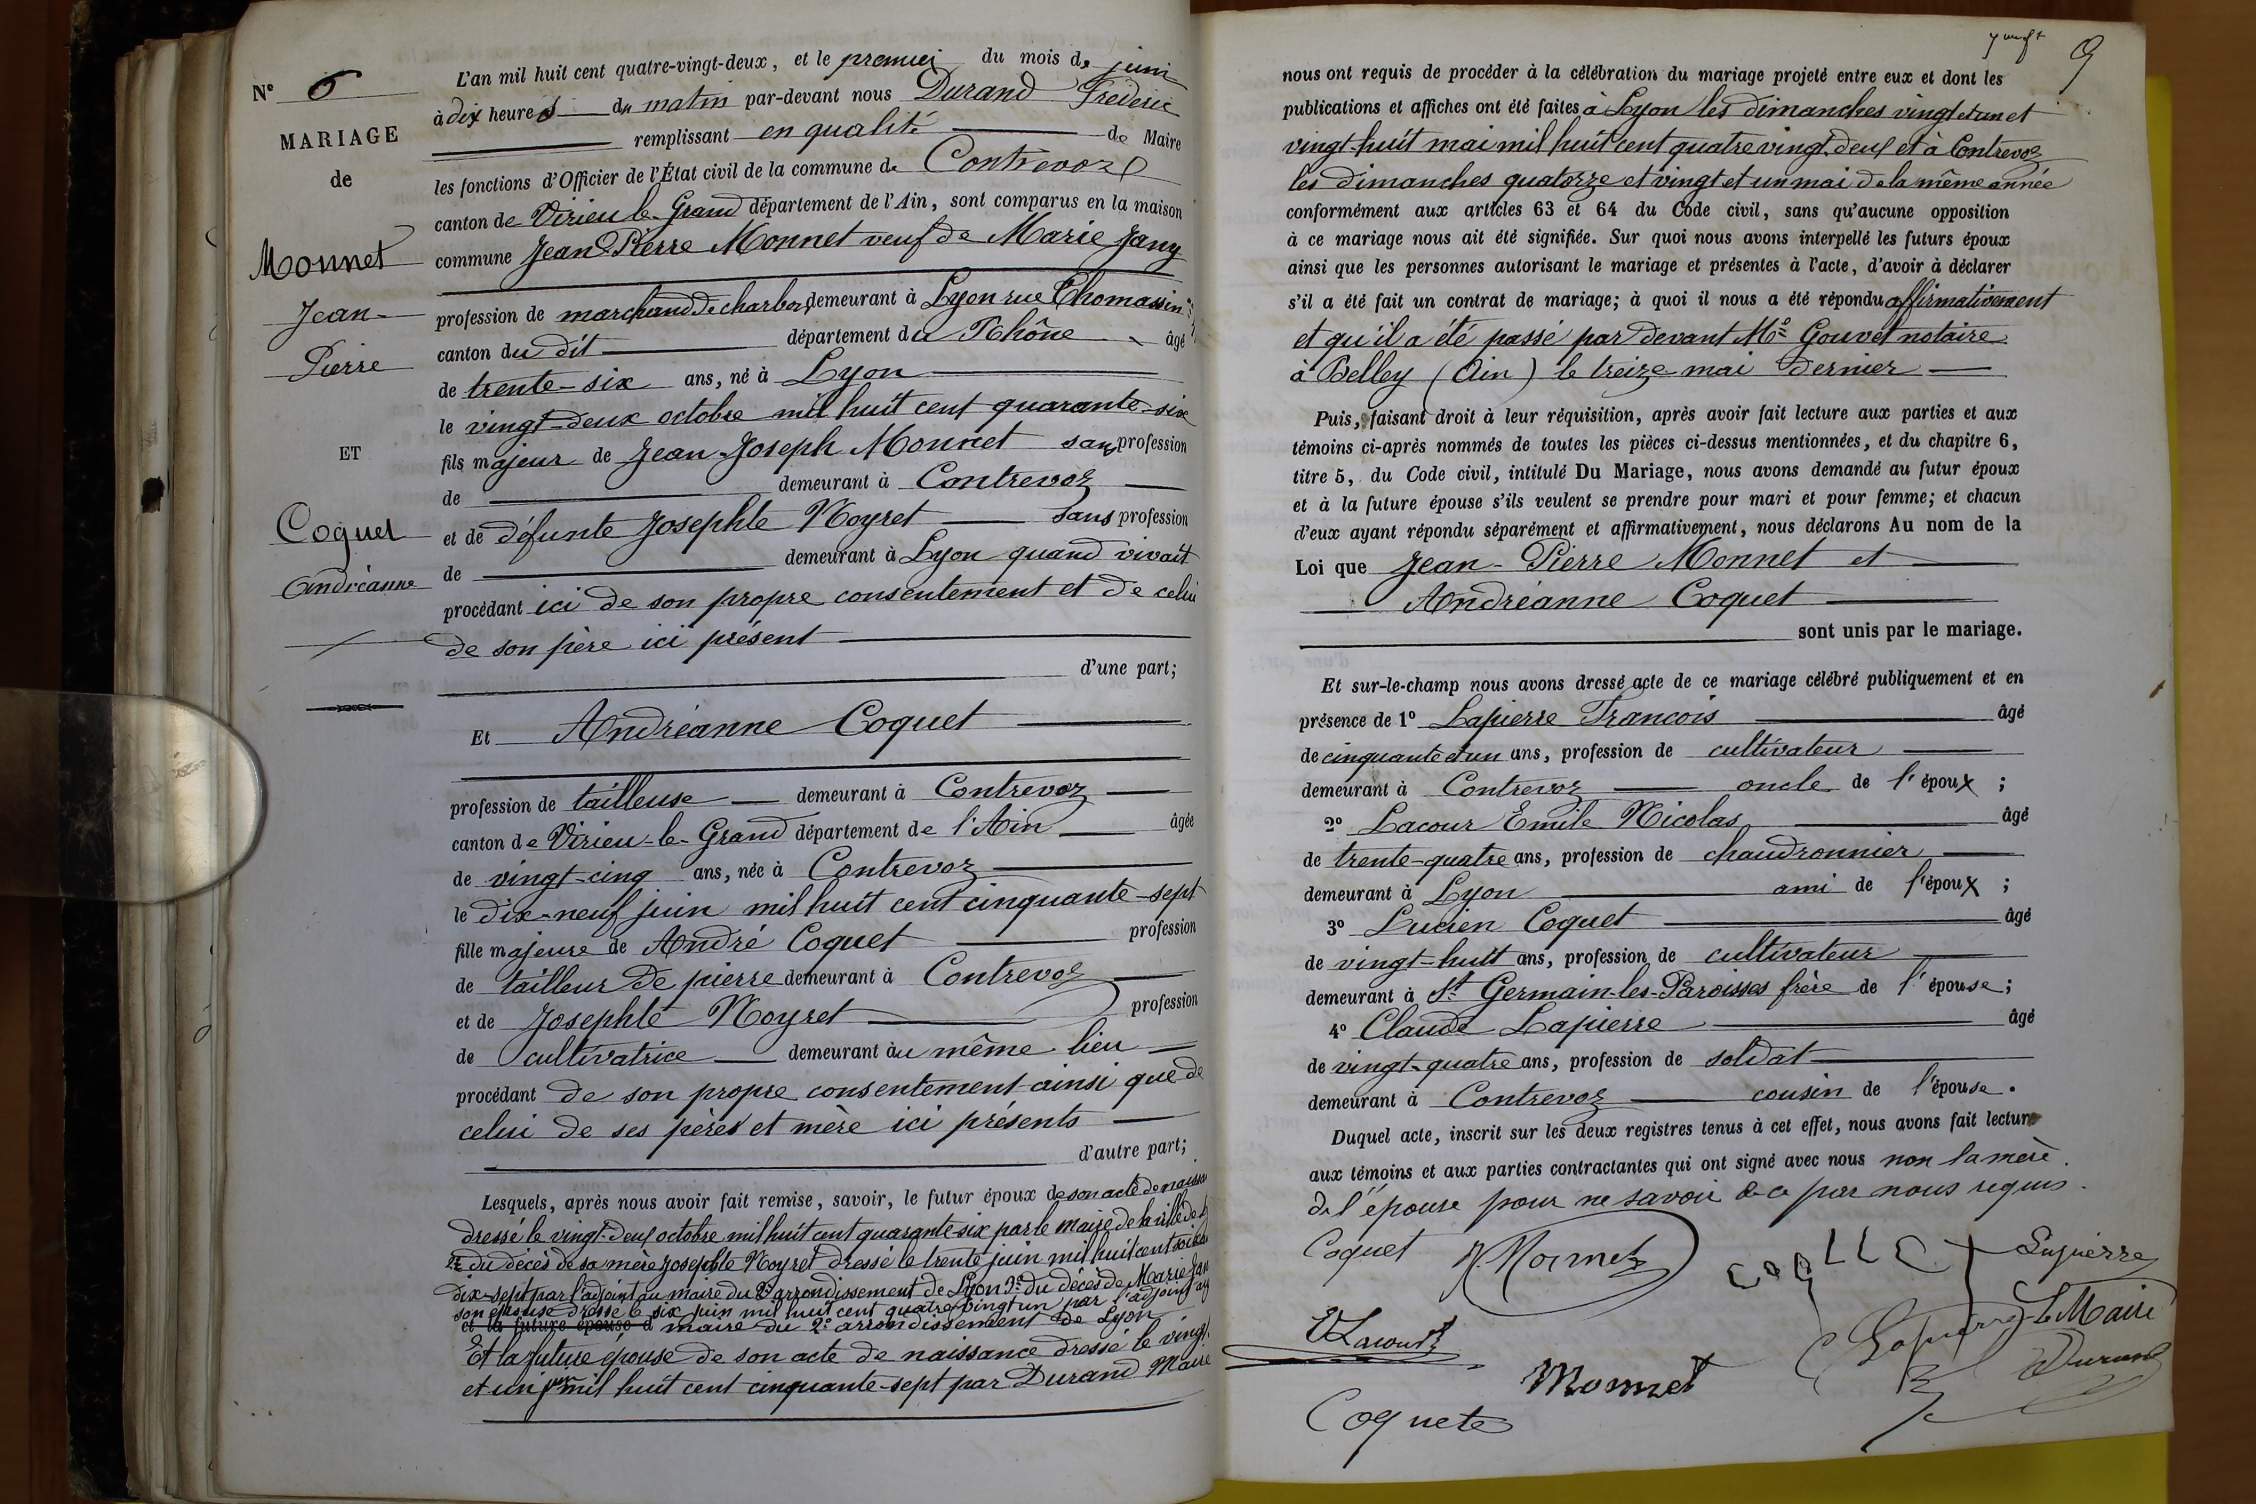 N° 6
MARIAGE
de
Monnet
Jean-
Pierre
ET
Coquet
Andréanne
L'an mil huit cent quatre-vingt-deux, et le premier du mois de juin
à dix heures du matin par-devant nous Durand Frédéric
remplissant en qualité de Maire
les fonctions d'Officier de l'État civil de la commune de Contrevoz
canton de Virieu-le-Grand département de l'Ain, sont comparus en la maison
commune Jean Pierre Monnet veuf de Marie Jany
profession de marchand de charbon demeurant à Lyon rue Thomassin
canton du dit département du Rhône âgé
de trente-six ans, né à Lyon
le vingt-deux octobre mil huit cent quarante-six
fils majeur de Jean-Joseph Monnet sans profession
de demeurant à Contrevoz
et de défunte Josephte Noyret sans profession
de demeurant à Lyon quand vivait
procédant ici de son propre consentement et de celui
de son père ici présent
d'une part;
Et Andréanne Coquet
profession de tailleuse demeurant à Contrevoz
canton de Virieu-le-Grand département de l'Ain âgée
de vingt-cinq ans, née à Contrevoz
le dix-neuf juin mil huit cent cinquante-sept
fille majeure de André Coquet profession
de tailleur de pierre demeurant à Contrevoz
et de Josephte Noyret profession
de cultivatrice demeurant au même lieu
procédant de son propre consentement ainsi que de
celui de ses pères et mère ici présents
d'autre part;
Lesquels, après nous avoir fait remise, savoir, le futur époux de son acte de
dressé le vingt-deux octobre mil huit cent quarante-six par le maire de la ville de
2° du décès de sa mère Josephte Noyret dressé le trente juin mil huit cent
dix-sept par l'adjoint au maire du 2° arrondissement de Lyon 3° du décès de Marie
son épouse dressé le six juin mil huit cent quatre vingt un par l'adjoint au
et la future épouse d maire du 2° arrondissement de Lyon
Et la future épouse de son acte de naissance dressé le vingt
et un juin mil huit cent cinquante-sept par Durand Maire
9
nous ont requis de procéder à la célébration du mariage projeté entre eux et dont les
publications et affiches ont été faites à Lyon les dimanches vingt et un et
vingt-huit mai mil huit cent quatre vingt-deux et à Contrevoz
les dimanches quatorze et vingt et un mai de la même année
conformément aux articles 63 et 64 du Code civil, sans qu'aucune opposition
à ce mariage nous ait été signifiée. Sur quoi nous avons interpellé les futurs époux
ainsi que les personnes autorisant le mariage et présentes à l'acte, d'avoir à déclarer
s'il a été fait un contrat de mariage; à quoi il nous a été répondu affirmativement
et qu'il a été passé par devant Me Gouvet notaire
à Belley (Ain) le treize mai dernier
Puis, faisant droit à leur réquisition, après avoir fait lecture aux parties et aux
témoins ci-après nommés de toutes les pièces ci-dessus mentionnées, et du chapitre 6,
titre 5, du Code civil, intitulé Du Mariage, nous avons demandé au futur époux
et à la future épouse s'ils veulent se prendre pour mari et pour femme; et chacun
d'eux ayant répondu séparément et affirmativement, nous déclarons Au nom de la
Loi que Jean-Pierre Monnet et
Andréanne Coquet
sont unis par le mariage.
Et sur-le-champ nous avons dressé acte de ce mariage célébré publiquement et en
présence de 1° Lapierre Francois âgé
de cinquante et un ans, profession de cultivateur
demeurant à Contrevoz oncle de l'époux ;
2° Lacour Emile Nicolas âgé
de trente-quatre ans, profession de chaudronnier
demeurant à Lyon ami de l'époux ;
3° Lucien Coquet âgé
de vingt-huit ans, profession de cultivateur
demeurant à St Germain-les-Paroisses frère de l'épouse;
4° Claude Lapierre âgé
de vingt-quatre ans, profession de soldat
demeurant à Contrevoz cousin de l'épouse.
Duquel acte, inscrit sur les deux registres tenus à cet effet, nous avons fait lecture
aux témoins et aux parties contractantes qui ont signé avec nous non la mère
de l'épouse pour ne savoir de ce par nous requis.
Coquet Monnet Lapierre
Lacour Lapierre Le Maire
Monnet Durand
Coquete